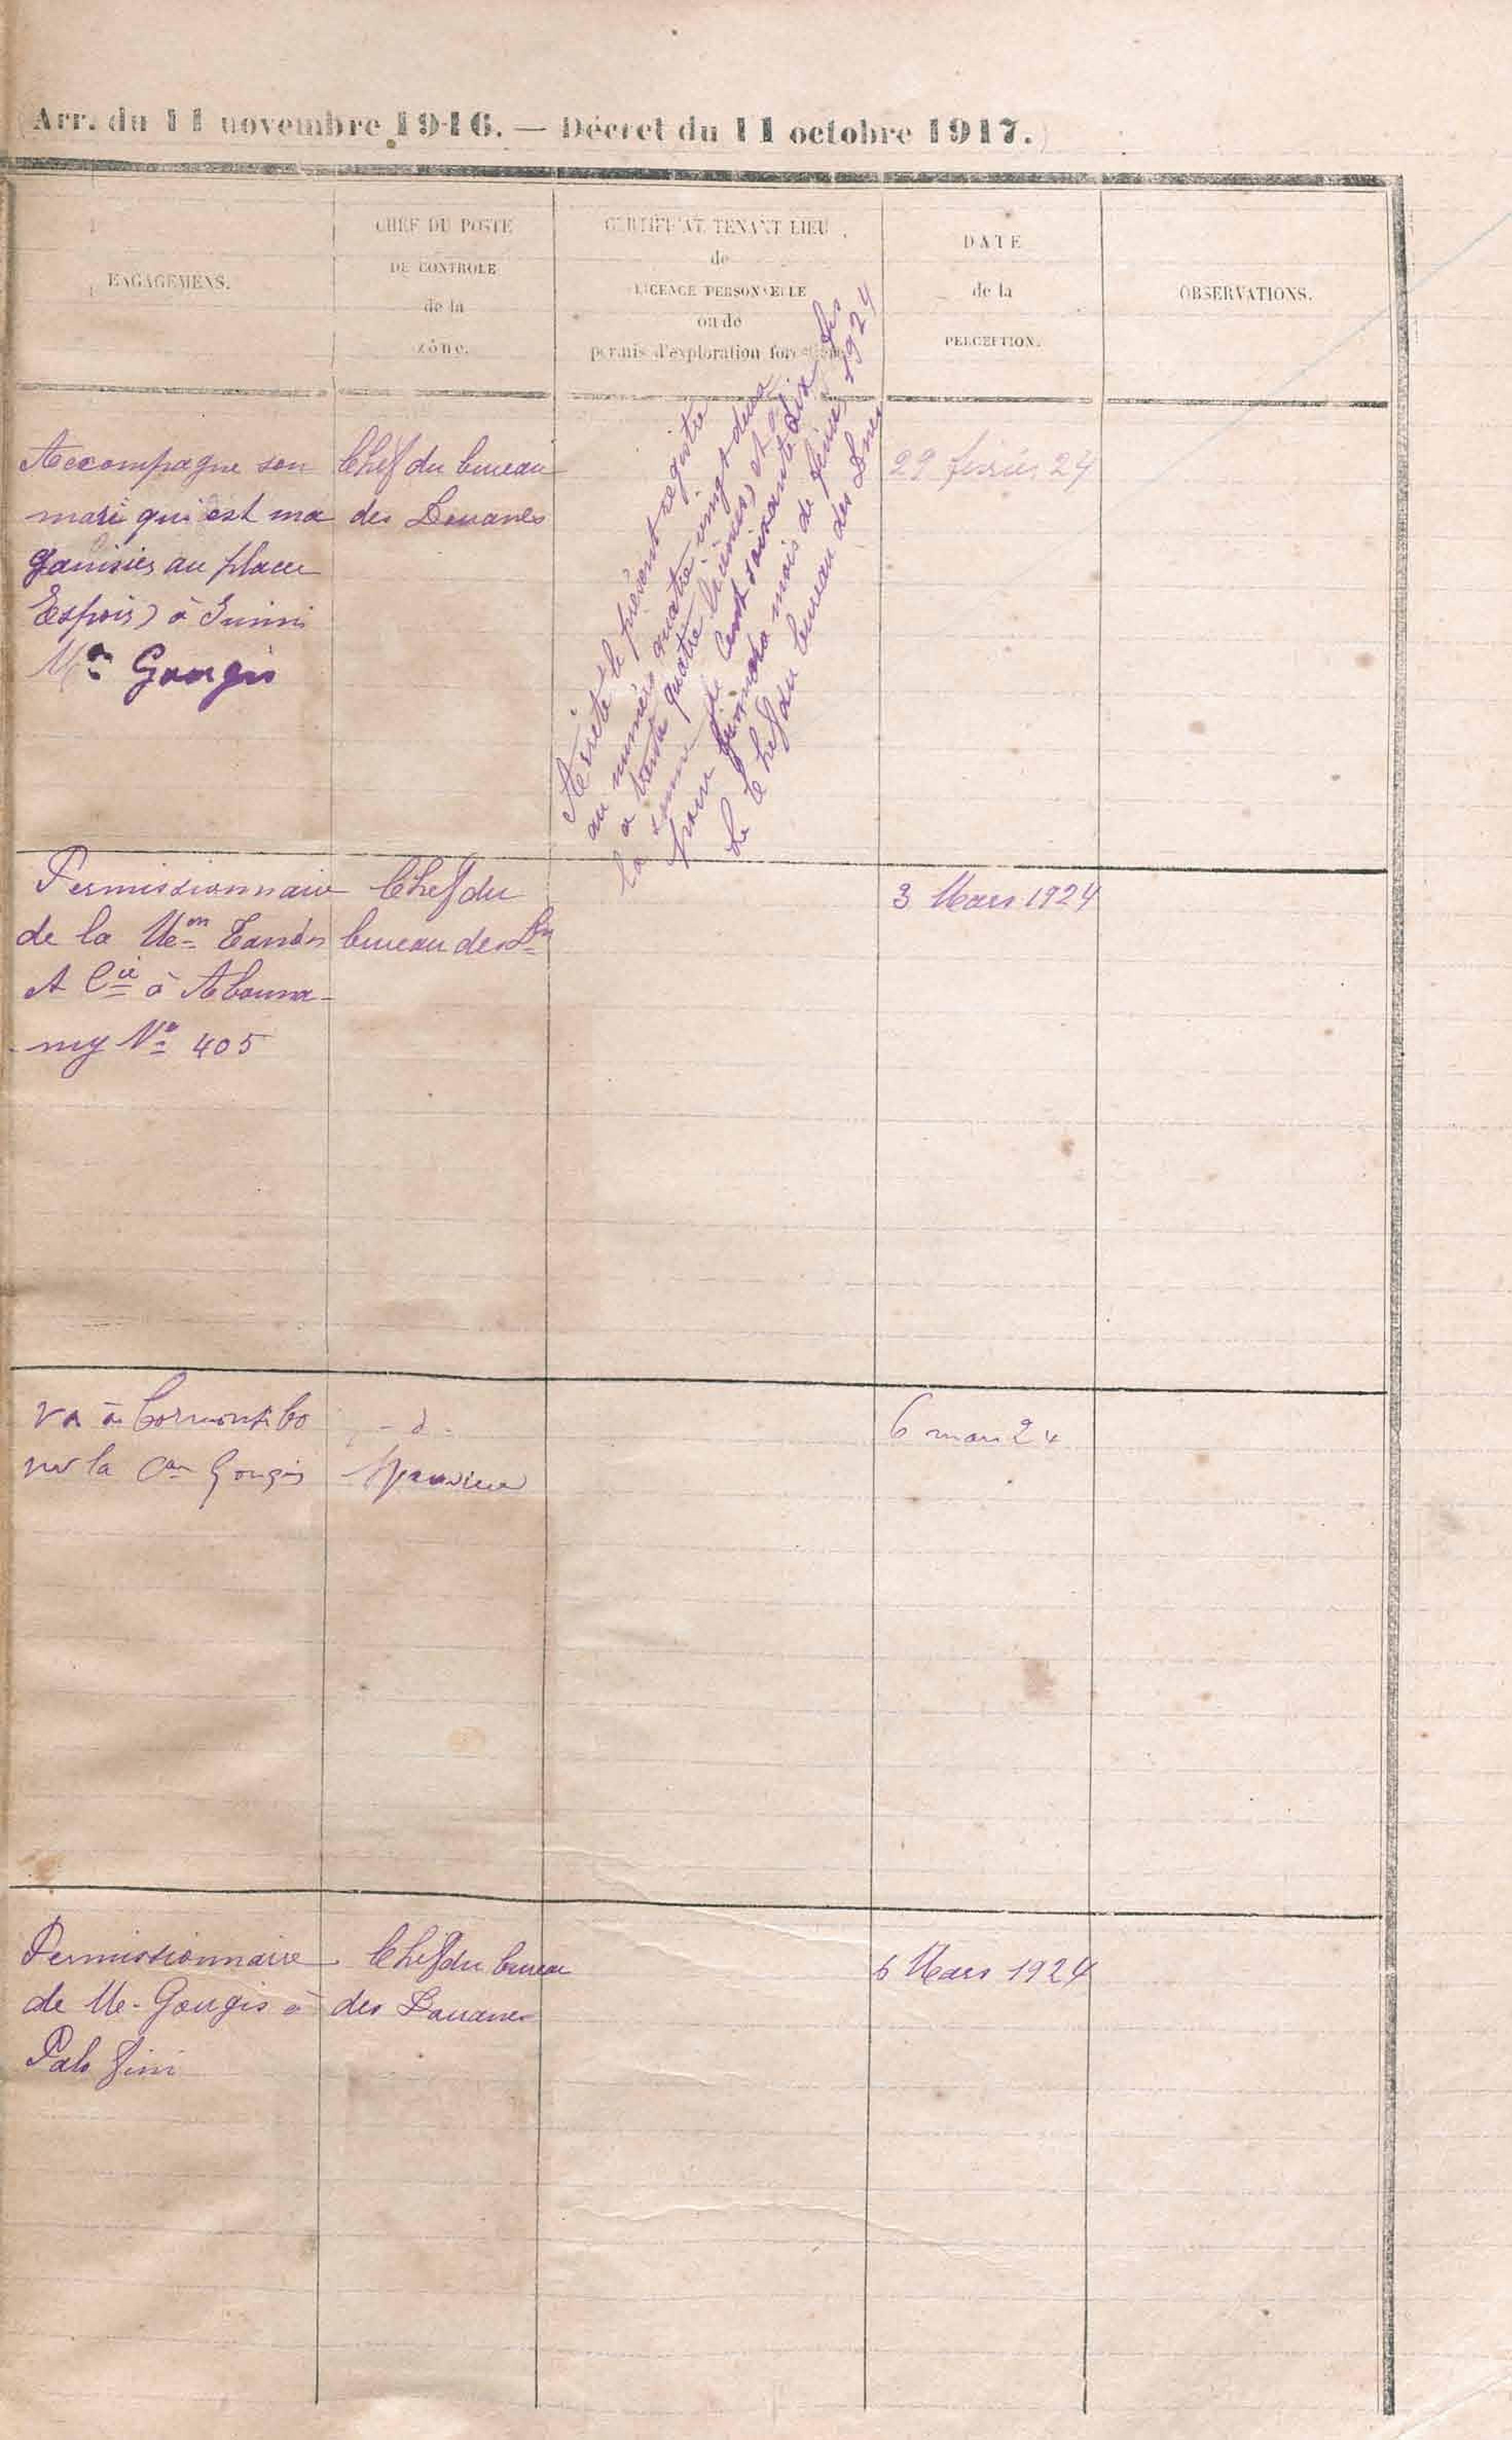 Arr. du 11 novembre 1916. — Décret du 11 octobre 1917.)
ENGAGEMENS.
CHEF DU POSTE
DE CONTROLE
de la
zône.
CERTIFICAT TENANT LIEU
de
LICENCE PERSONNELLE
ou de
permis d'exploration forestière
DATE
de la
PERCEPTION.
OBSERVATIONS.
Accompagne son
mari qui est ma
gasinier au placer
Espoir) à Inini
Mon Gougis
Chef du bureau
des Douanes
Arrêté le présent registre
au numéro quatre vingt deux
a trente quatre licences) et à
la somme de Cent soixante dix frs
pour mois de février 1924
Le Chef du bureau des Dnes
29 février 24
Permissionnaire
de la Mon Tanon
et Cie à Abouna-
-my No 405
Chef du
bureau des Dn
3 Mars 1924
va à Cormontibo
sur la Con Gougis
- d -
6 mars 24
Permissionnaire
de Me. Gougis à
Palo fini
Chef du bureau
des Douanes
6 Mars 1924